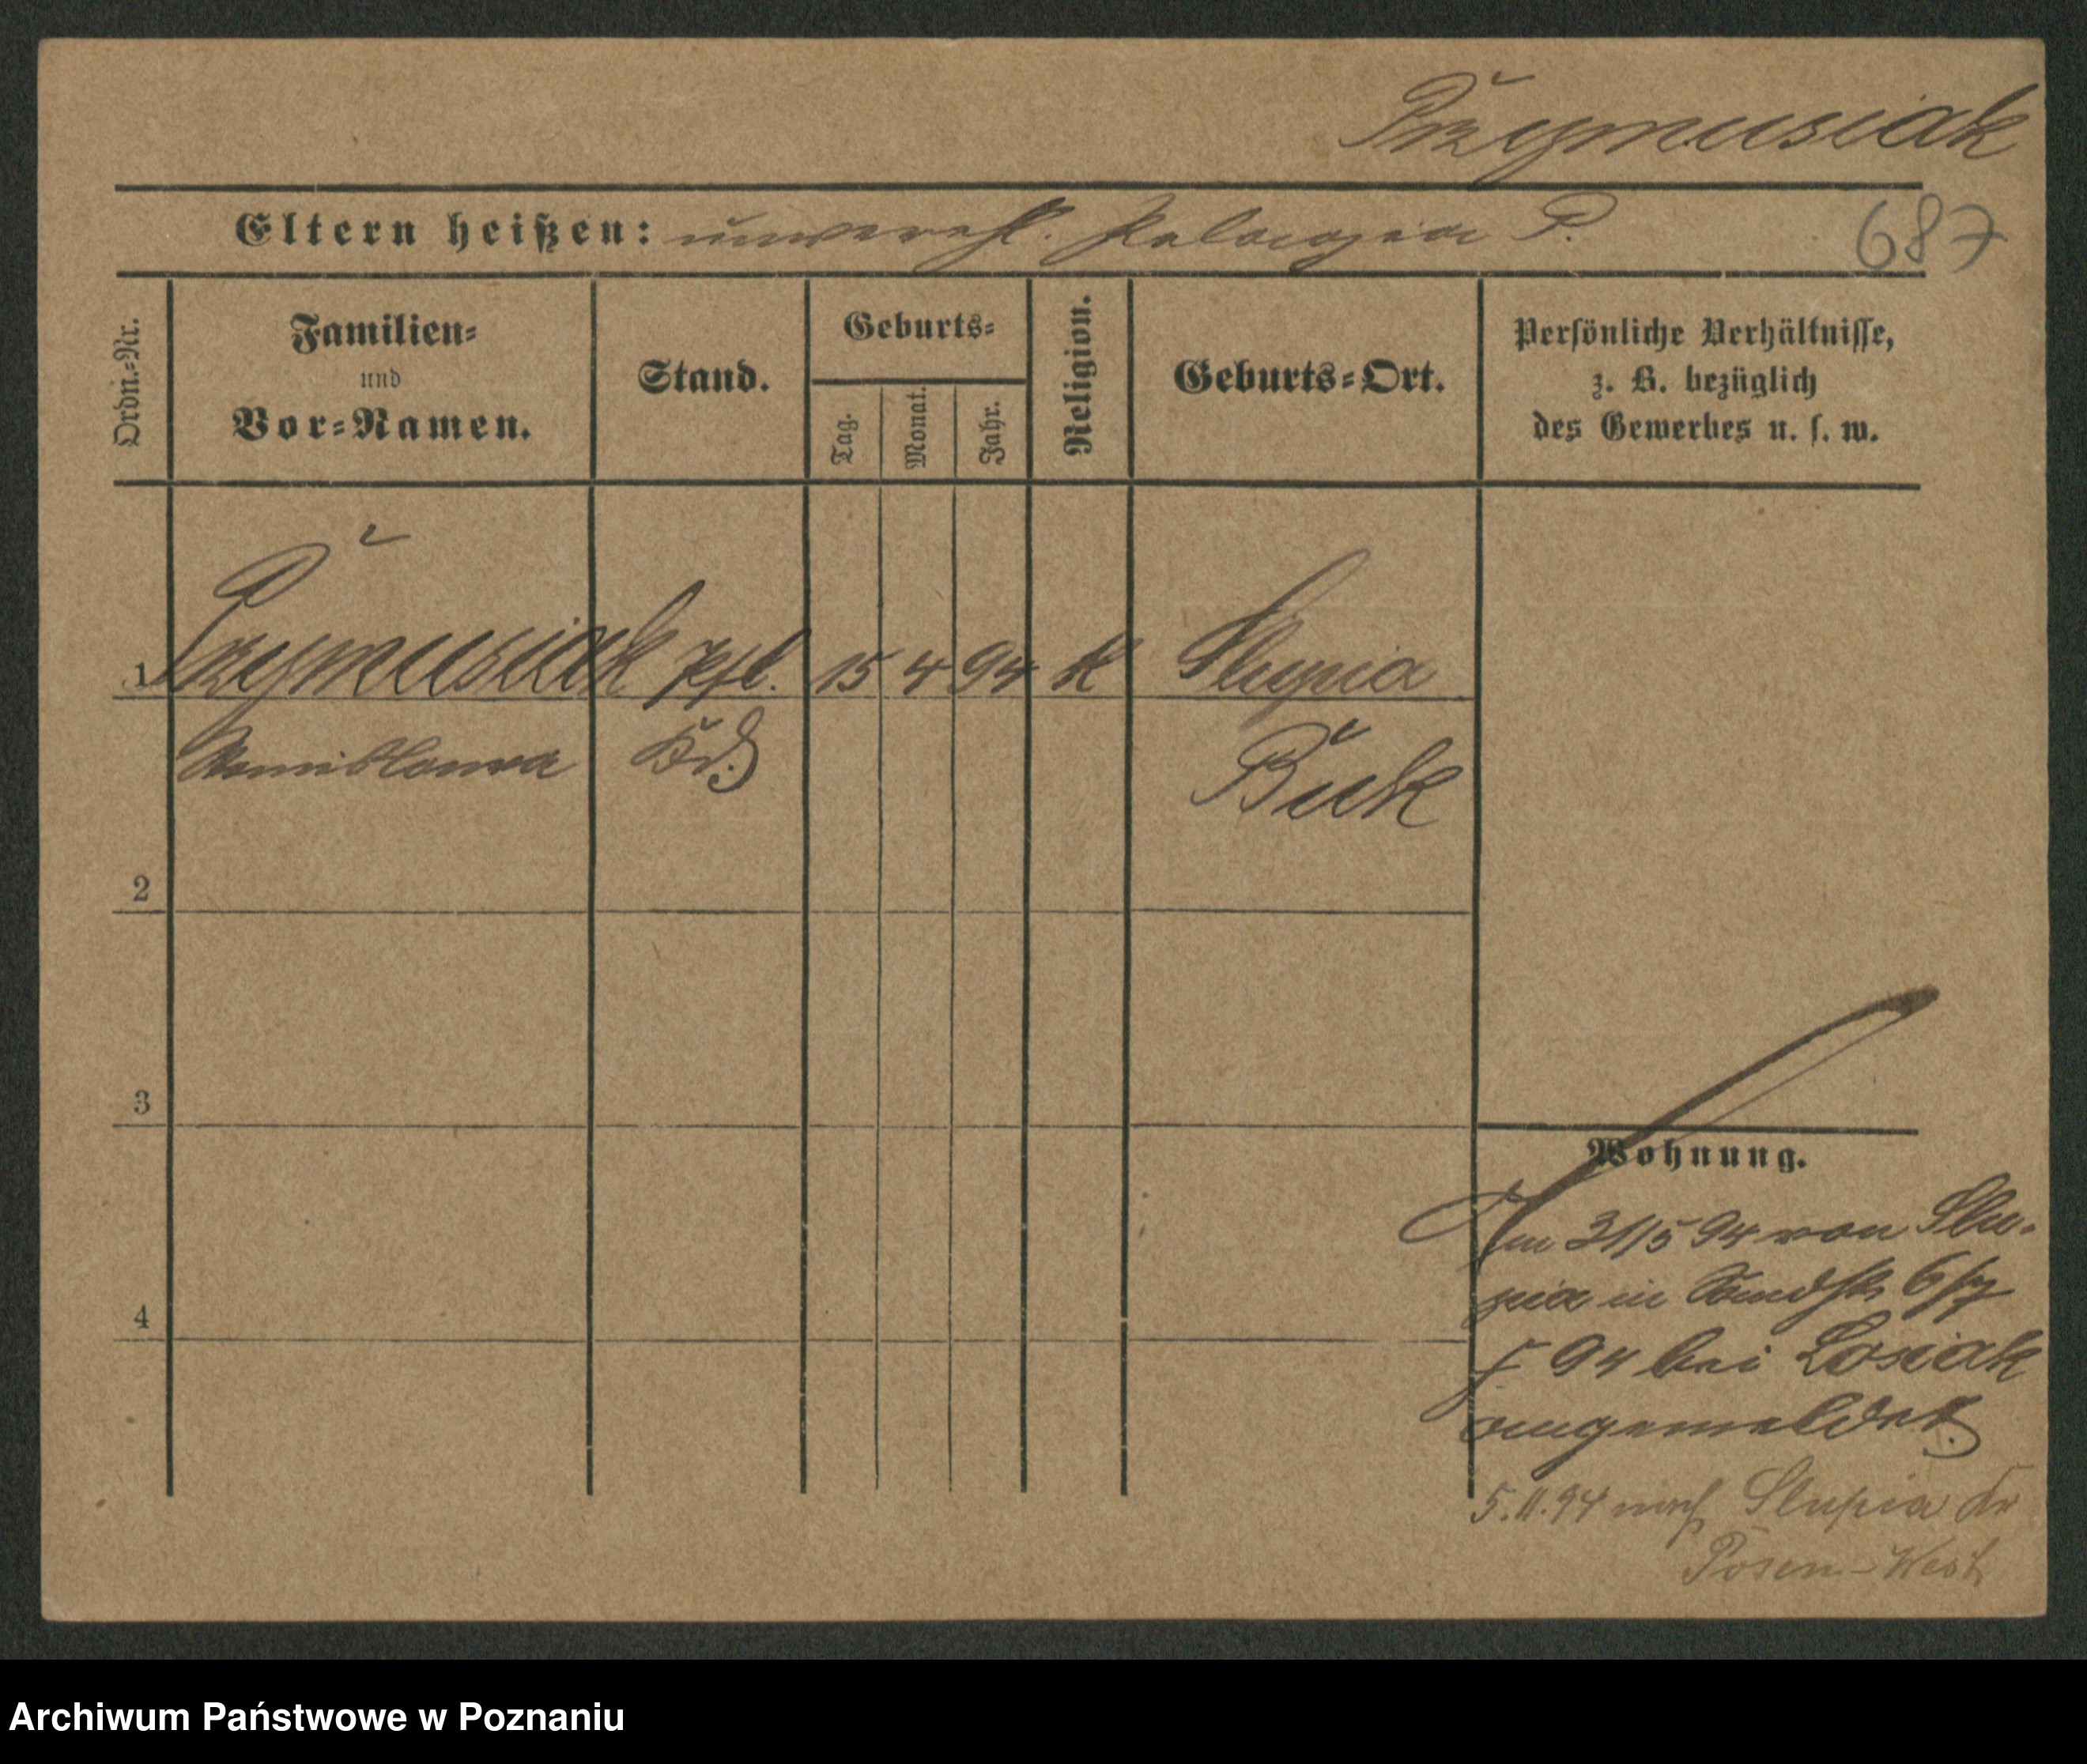 Przymusiak
Eltern heißen: unvereh. Pelagia P.
687
Ordn.-Nr.
Familien- und Vor-Namen.
Stand.
Geburts-
Tag.
Monat.
Jahr.
Religion.
Geburts-Ort.
Persönliche Verhältnisse,
z. B. bezüglich
des Gewerbes u. s. w.
1 Przymusiak Pfl. 15 4 94 K Slupia
Stanislawa Kd. Buk
2
3
4
Wohnung.
Am 31/5 94 von Slu-
pia in
94 bei Losiak
angemeldet
5.11.94 nach Slupia Kr
Posen-West
Archiwum Państwowe w Poznaniu